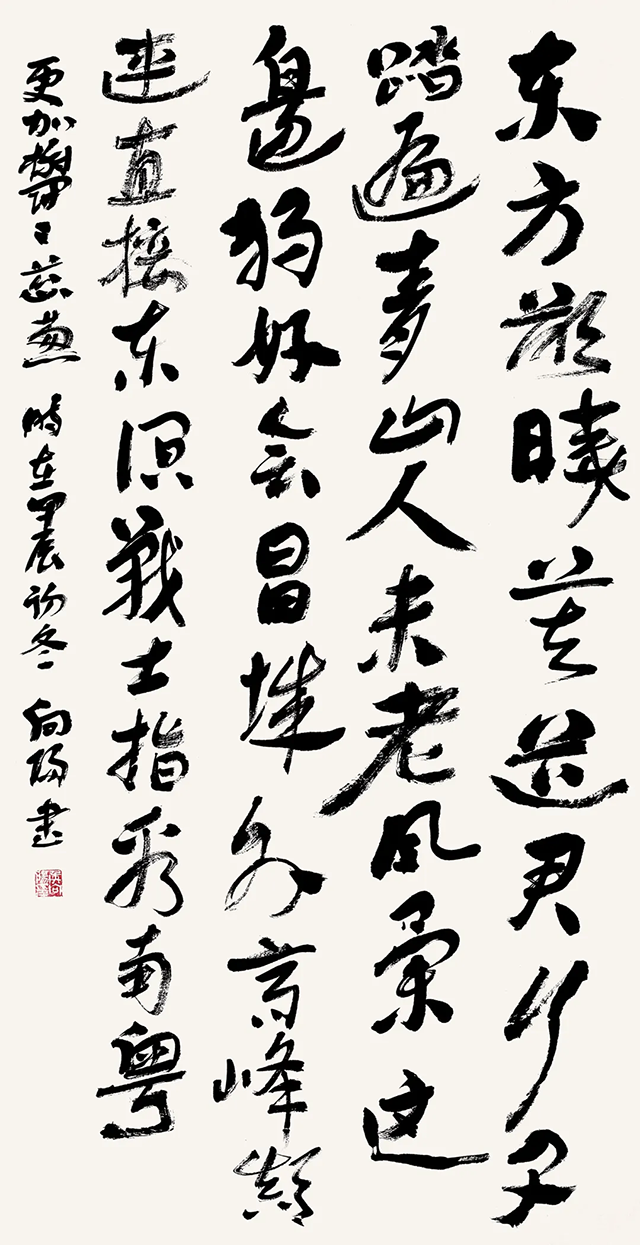 东方欲曉莫道君行早
踏遍青山人未老风景这
邊独好会昌城外高峰顛
連直接东溟戰士指看南粤
更加鬱々葱葱 時在甲辰初冬 向陽書